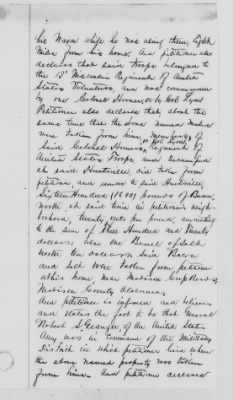 his Wagon while he was using them, Eight
Miles from his home. And petitioner also
declares that said Troops belonged to
the 13th Wisconsin Regiment of United
States Volunteers, and was commanded
by one Colonel or by Col Lyon
Petitioner also declares that about the
same time that the above named Mules
were taken from him, members of
Said Colonel or Col Lyons Regiment of
United States Troops now encamped
at said Huntsville did take from
petitioner, and remove to said Huntsville
Six ten Hundred (1600) pounds of Bacon,
worth at said time in petitioners neigh-
borhood, twenty cents per pound, amounting
to the sum of Three Hundred and Twenty
dollars; also one Barrel of Salt
worth ten dollars, said Bacon
and Salt were taken from petitioner
at his home near Madison
Madison County Alabama,
And petitioner is informed and believes
and states the fact to be that General
Robert S. Granger, of the United States
Army was in Command of the Military
District in which petitioner lived when
the above named property was taken
from him. And petitioner declares